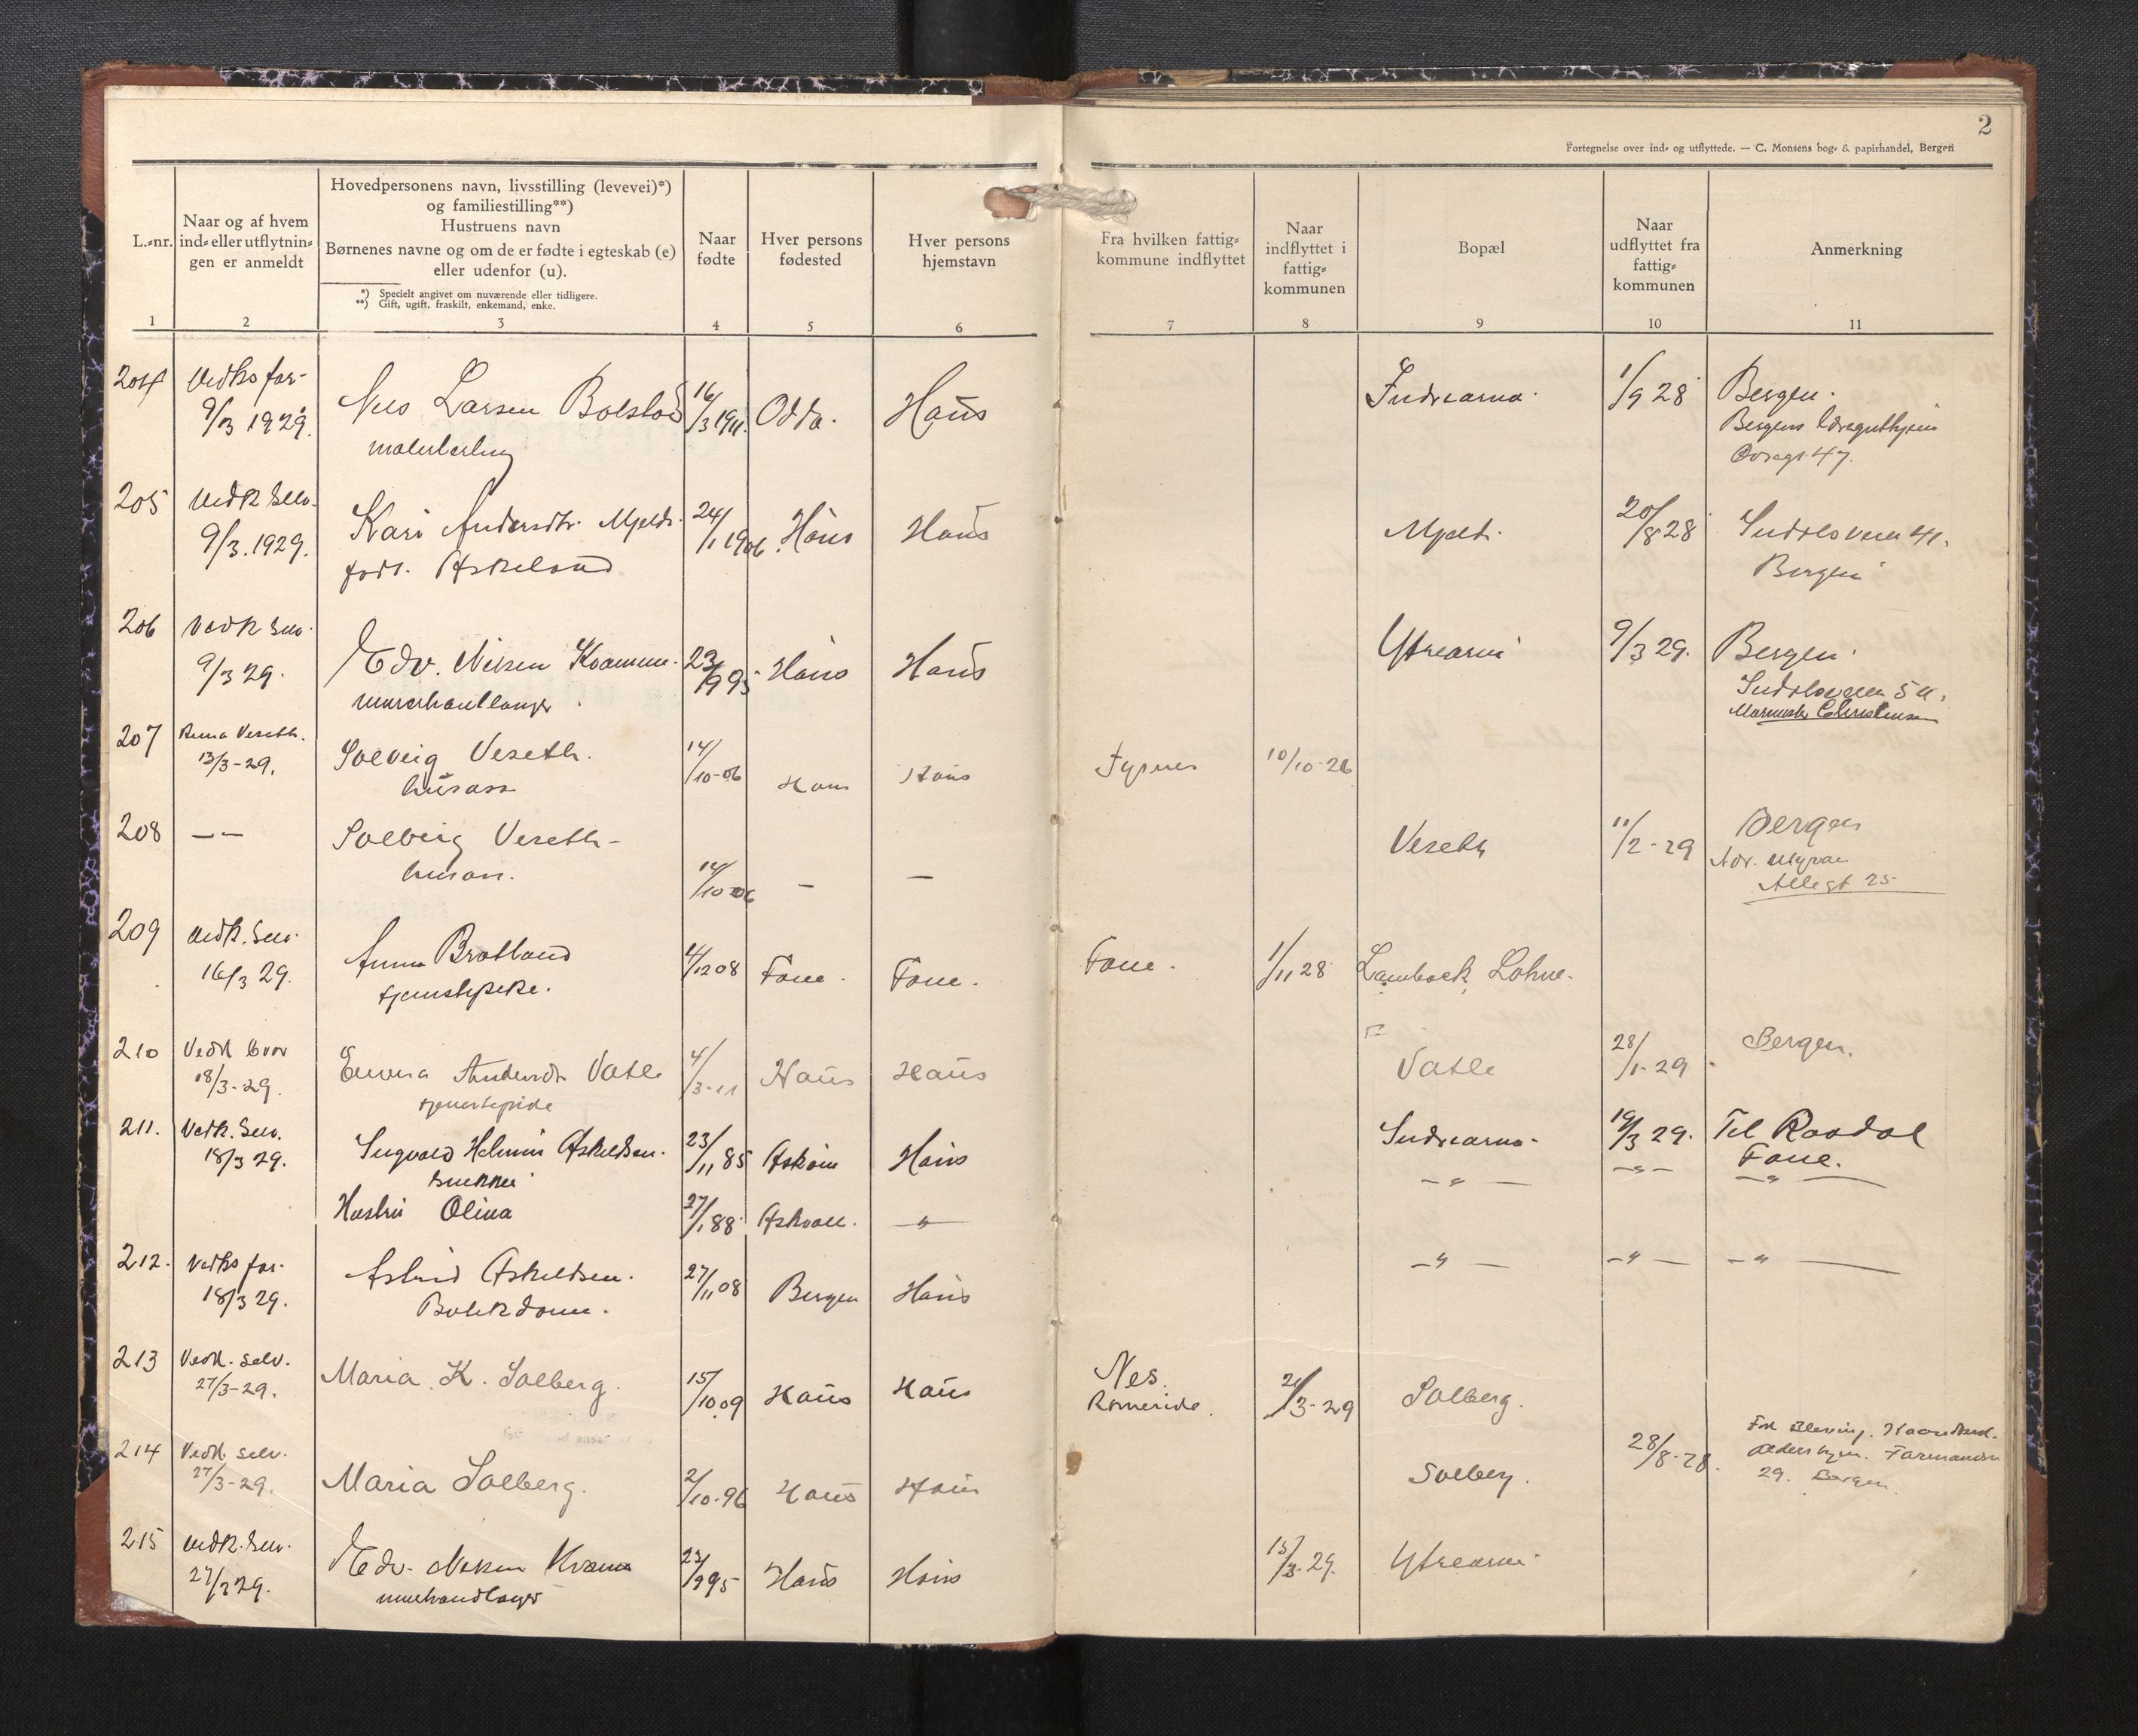 2
Fortegnelse over ind- og utflyttede. — C. Monsens bog- & papirhandel, Bergen
L.-nr.
Naar og af hvem
ind- eller utflytnin-
gen er anmeldt
Hovedpersonens navn, livsstilling (levevei)*)
og familiestilling**)
Hustruens navn
Børnenes navne og om de er fødte i egteskab (e)
eller udenfor (u).
*) Specielt angivet om nuværende eller tidligere.
**) Gift, ugift, fraskilt, enkemand, enke.
Naar
fødte
Hver persons
fødested
Hver persons
hjemstavn
Fra hvilken fattig-
kommune indflyttet
Naar
indflyttet i
fattig-
kommunen
Bopæl
Naar
udflyttet fra
fattig-
kommunen
Anmerkning
1 2 3 4 5 6 7 8 9 10 11
204 Vedks far- Nils Larsen Bolstad 16/3 1911 Odda. Haus Indrearna 1/9 28 Bergen.
9/3 1929.
malerlærling
47.
205 Vedk selv. Kari Andersdtr. Mjeld. 24/1 1906. Haus Haus Mjeld. 20/8 28 41.
9/3.1929. født. Askeland Bergen
206 Vedk selv. Edv. Nilsen Kvamme. 23/9 95 Haus Haus Ytrearna 9/3 29. Bergen.
9/3 29.
murerhantlanger
207 Anna Veseth. Solveig Veseth. 14/10-06 Haus Haus 10/10-26
13/3-29. husass
208 — — Solveig Veseth- 14/10 06 — — Veseth 11/2-29 Bergen
husass.
Allegt 25
209 Vedk. selv. Anna Bratland 4/12 08 Fane. Fane. Fane. 1/11 28 Lone.
16/3 29. tjenestepike.
210 Vedk bror Emma Andersdr Vatle 4/3-11 Haus Haus Vatle 28/1-29 Bergen.
18/3-29. tjenestepike
211. Vedk. selv. Askeldsen. 23/11 85 Askøen Haus Indrearna- 19/3 29. Til Raadal
18/3 29. snekker Fane.
Hustru Olina 27/1 88 Askøen. — " — — " — — " — — " —
212. Vedks far. Astrid Askeldsen. 27/11 08 Bergen Haus — " — — " — — " —
18/3 29. Butikdame.
213 Vedk. selv. Maria K. Solberg. 15/10 09 Haus Haus Nes. 21/3-29 Solberg.
27/3-29. Romerike.
214 Vedk. selv. Maria Solberg. 2/10-96 Haus Haus Solberg. 28/8-28.
27/3-29. 29. Bergen.
215 Vedk. selv. Edv. Nilsen Kvamme 23/9 95 Haus Haus 15/3-29. Ytrearna
27/3 29. murhandlanger